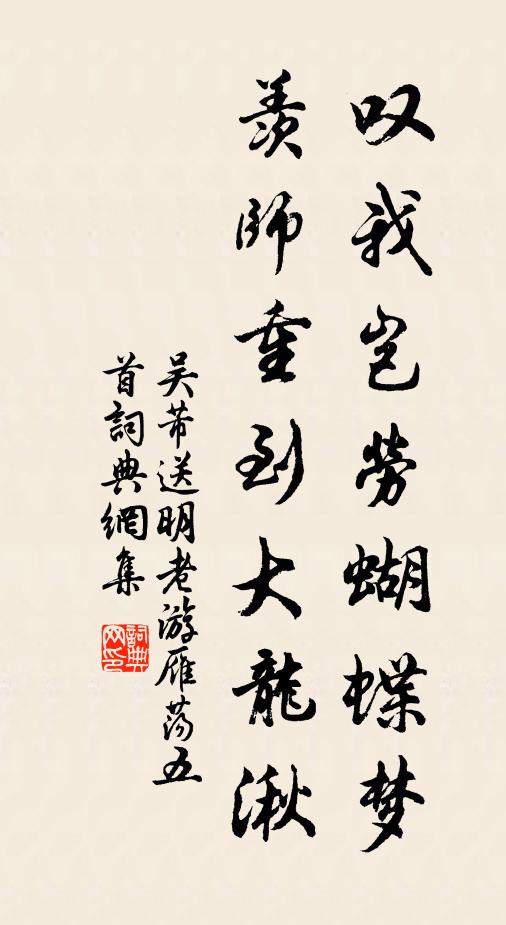 叹我岂劳蝴蝶梦
羡师重到大龙湫
吴芾送明老游雁荡五
首詞典網集
詞典
网印